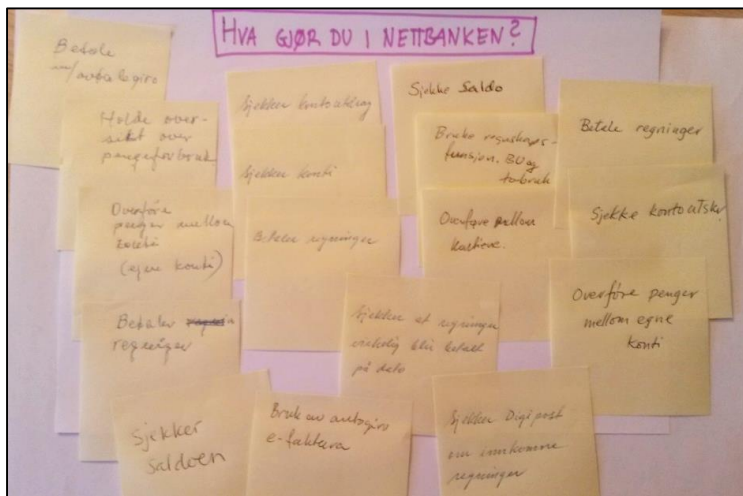 HVA GJØR DU I NETTBANKEN?
Betale
m/avtalegiro
Holde over-
sikt over
pengeforbruk
Overføre
penger mellom
konti
(egne konti)
Betaler
regninger
Sjekker
saldoen
Sjekker kontoutdrag
Sjekker konti
Betaler regninger
Sjekker at regningen
virkelig blir betalt
på dato
Bruk av avtogiro
e-faktura
Sjekke Saldo
Bruke regnskaps-
funsjon.
Overføre mellom
Sjekker Digipost
om innkomne
regninger
Betale regninger
Sjekke kontoutskr
Overføre penger
mellom egne
konti